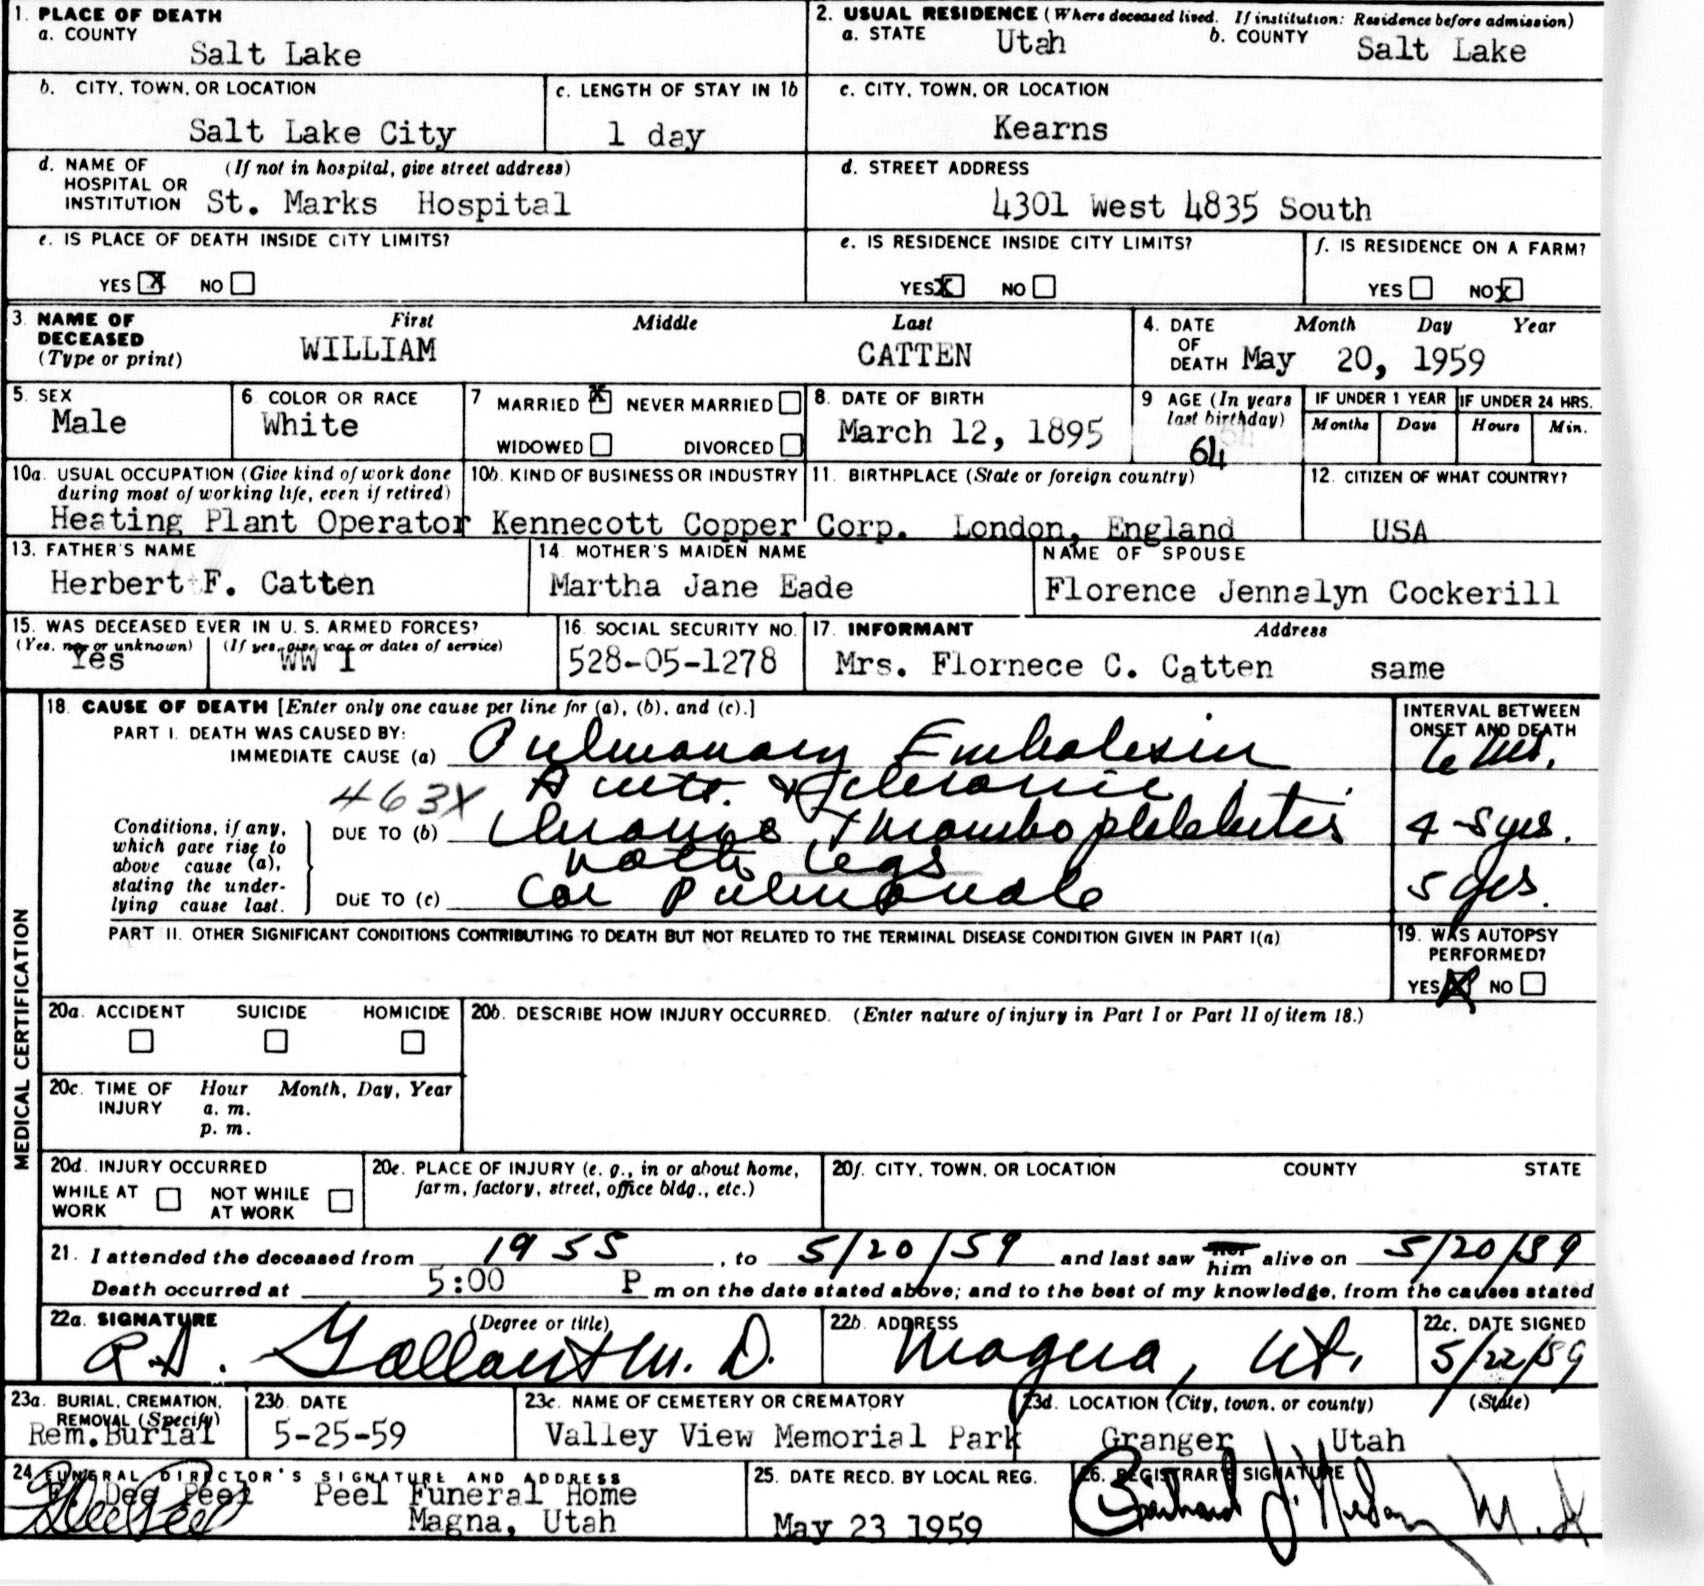 1. PLACE OF DEATH
a. COUNTY
Salt Lake
2. USUAL RESIDENCE (Where deceased lived. If institution: Residence before admission)
a. STATE Utah b. COUNTY Salt Lake
b. CITY, TOWN, OR LOCATION
Salt Lake City
c. LENGTH OF STAY IN 1b
1 day
c. CITY, TOWN, OR LOCATION
Kearns
d. NAME OF (If not in hospital, give street address)
HOSPITAL OR
INSTITUTION St. Marks Hospital
d. STREET ADDRESS
4301 West 4835 South
e. IS PLACE OF DEATH INSIDE CITY LIMITS?
YES X NO
e. IS RESIDENCE INSIDE CITY LIMITS?
YES X NO
f. IS RESIDENCE ON A FARM?
YES NO X
3. NAME OF DECEASED (Type or print)
First Middle Last
WILLIAM CATTEN
4. DATE OF DEATH Month Day Year
May 20, 1959
5. SEX
Male
6 COLOR OR RACE
White
7 MARRIED X NEVER MARRIED
WIDOWED DIVORCED
8. DATE OF BIRTH
March 12, 1895
9 AGE (In years last birthday)
64
IF UNDER 1 YEAR IF UNDER 24 HRS.
Months Days Hours Min.
10a. USUAL OCCUPATION (Give kind of work done
during most of working life, even if retired)
Heating Plant Operator
10b. KIND OF BUSINESS OR INDUSTRY
Kennecott Copper Corp.
11. BIRTHPLACE (State or foreign country)
London, England
12. CITIZEN OF WHAT COUNTRY?
USA
13. FATHER'S NAME
Herbert F. Catten
14. MOTHER'S MAIDEN NAME
Martha Jane Eade
NAME OF SPOUSE
Florence Jennalyn Cockerill
15. WAS DECEASED EVER IN U. S. ARMED FORCES?
(Yes, no, or unknown) (If yes, give war or dates of service)
Yes WW 1
16. SOCIAL SECURITY NO.
528-05-1278
17. INFORMANT Address
Mrs. Flornece C. Catten same
MEDICAL CERTIFICATION
18. CAUSE OF DEATH [Enter only one cause per line for (a), (b), and (c).]
INTERVAL BETWEEN
ONSET AND DEATH
PART I. DEATH WAS CAUSED BY:
IMMEDIATE CAUSE (a) Pulmonary Embolism
463X Acute &
Conditions, if any,
which gave rise to
above cause (a),
stating the under-
lying cause last.
DUE TO (b) Chronic Thrombophlebitis 4-5 yrs.
both legs
DUE TO (c) Cor Pulmonale 5 yrs.
PART II. OTHER SIGNIFICANT CONDITIONS CONTRIBUTING TO DEATH BUT NOT RELATED TO THE TERMINAL DISEASE CONDITION GIVEN IN PART I(a)
19. WAS AUTOPSY
PERFORMED?
YES X NO
20a. ACCIDENT SUICIDE HOMICIDE
20b. DESCRIBE HOW INJURY OCCURRED. (Enter nature of injury in Part I or Part II of item 18.)
20c. TIME OF INJURY Hour Month, Day, Year
a. m.
p. m.
20d. INJURY OCCURRED
WHILE AT WORK NOT WHILE AT WORK
20e. PLACE OF INJURY (e. g., in or about home,
farm, factory, street, office bldg., etc.)
20f. CITY, TOWN, OR LOCATION COUNTY STATE
21. I attended the deceased from 1955, to 5/20/59 and last saw her him alive on 5/20/59
Death occurred at 5:00 P m on the date stated above; and to the best of my knowledge, from the causes stated
22a. SIGNATURE (Degree or title)
R.D. Gallant M. D.
22b. ADDRESS
Magna, Ut.
22c. DATE SIGNED
5/22/59
23a. BURIAL, CREMATION,
REMOVAL (Specify)
Rem.Burial
23b. DATE
5-25-59
23c. NAME OF CEMETERY OR CREMATORY
Valley View Memorial Park
23d. LOCATION (City, town, or county) (State)
Granger Utah
24 FUNERAL DIRECTOR'S SIGNATURE AND ADDRESS
Dee Peel Peel Funeral Home
Magna, Utah
25. DATE RECD. BY LOCAL REG.
May 23 1959
26. REGISTRAR'S SIGNATURE
M.D